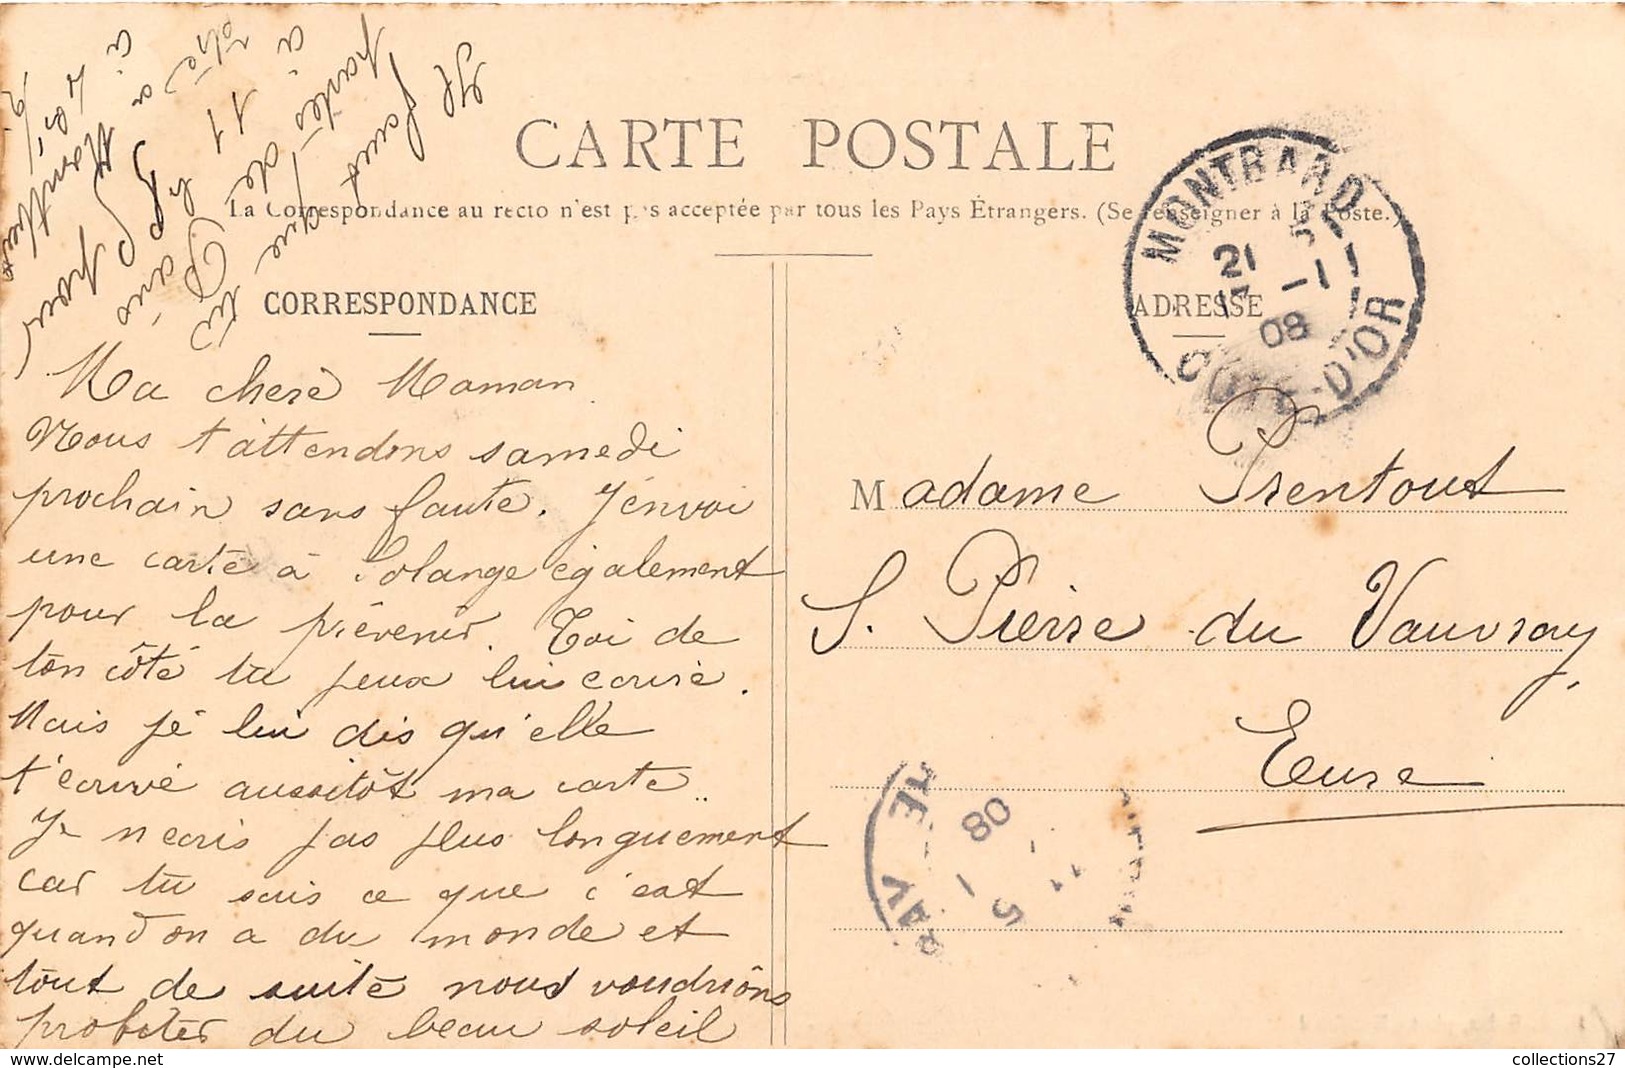 CARTE POSTALE
La Correspondance au recto n'est pas acceptée par tous les Pays Étrangers. (Se renseigner à la Poste.)
CORRESPONDANCE
Ma chere Maman
Nous t'attendons samedi
prochain sans faute. J'envoi
une carte à Solange également
pour la prévenir. Toi de
ton côté tu peux lui ecrire.
Mais je lui dis qu'elle
t'ecrive aussitôt ma carte..
Je n'ecris pas plus longuement
car tu sais ce que c'est
quand on a du monde et
tout de suite nous voudrions
profiter du beau soleil
Il faut
partes que tu
à 11 de Paris
être
à Montbard
pour
ADRESSE
MONTBARD
21
5 -1
08
CÔTE-D'OR
Madame Prentout
S. Pierre du Vauvray,
Eure
5 -1
08
collections27